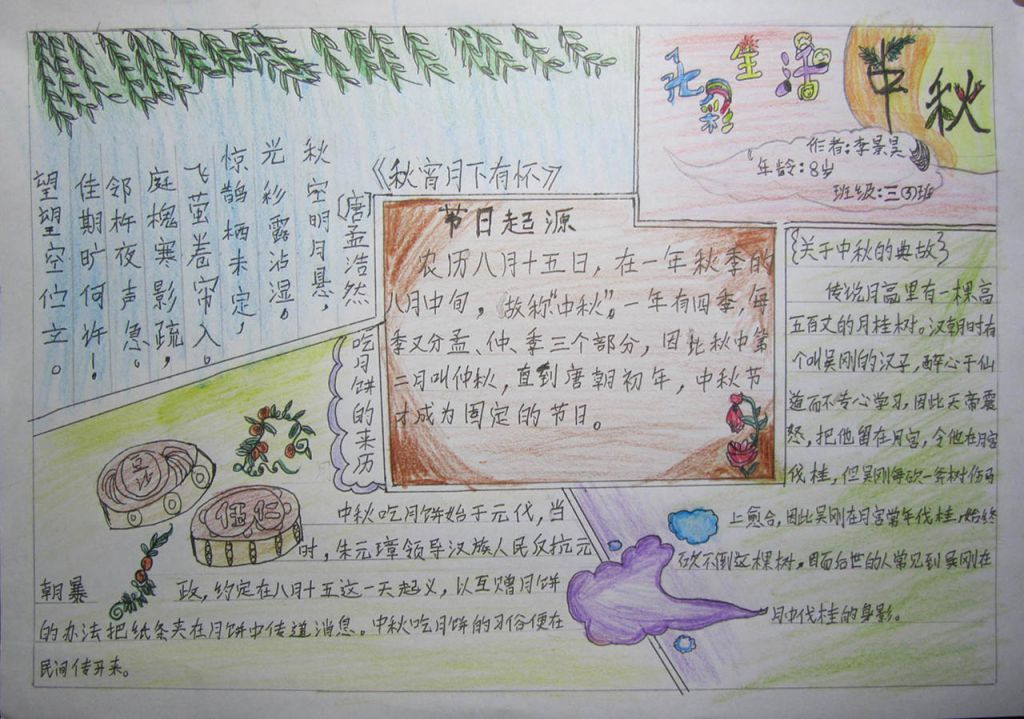 七彩生活
中秋
作者:李景昊
年龄:8岁
班级:三③班
《秋宵月下有怀》
〔唐〕孟浩然
秋空明月悬,
光彩露沾湿。
惊鹊栖未定,
飞萤卷帘入。
庭槐寒影疏,
邻杵夜声急。
佳期旷何许!
望望空伫立。
节日起源
农历八月十五日,在一年秋季的
八月中旬,故称“中秋”。一年有四季,每
季又分孟、仲、季三个部分,因此秋中第
二月叫仲秋,直到唐朝初年,中秋节
才成为固定的节日。
{关于中秋的典故}
传说月亮里有一棵高
五百丈的月桂树。汉朝时有
个叫吴刚的汉子,醉心于仙
道而不专心学习,因此天帝震
怒,把他留在月宫,令他在月宫
伐桂,但吴刚每砍一斧树伤马
上愈合,因此吴刚在月宫常年伐桂,始终
砍不倒这棵树,因而后世的人常见到吴刚在
月中伐桂的身影。
吃月饼的来历
豆沙
伍仁
中秋吃月饼始于元代,当
时,朱元璋领导汉族人民反抗元
朝暴政,约定在八月十五这一天起义,以互赠月饼
的办法把纸条夹在月饼中传道消息。中秋吃月饼的习俗便在
民间传开来。